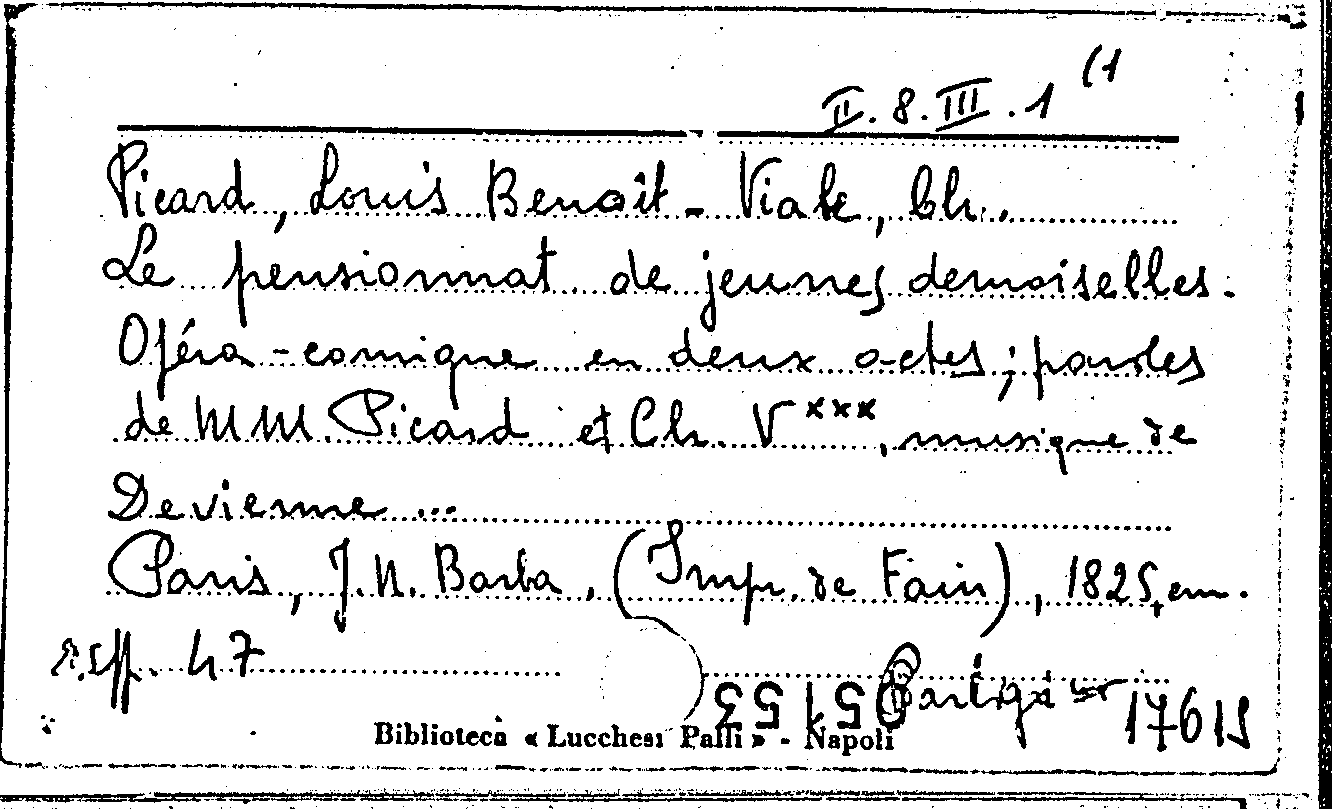 II.8.III.1 (1
Picard, Louis Benoît - Viale, Ch..
Le pensionnat de jeunes demoiselles.
Opéra-comique en deux actes; paroles
de MM. Picard et Ch. V xxx, musique de
Devienne ...
Paris, J.N. Barba, (Imp. de Fain), 1825, cm.
pp. 47
051553 17615
Biblioteca « Lucchesi Palli » - Napoli